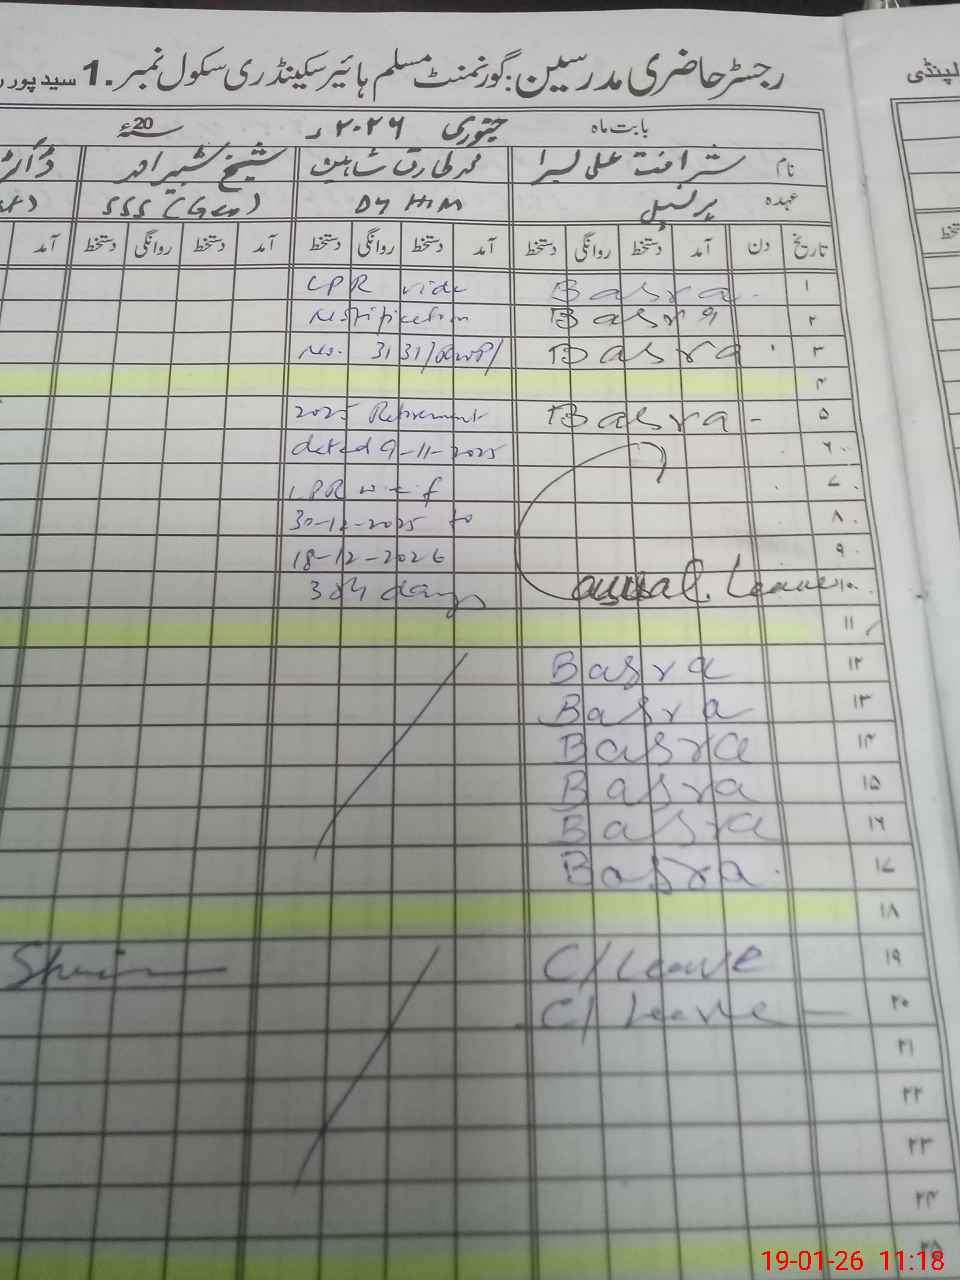 رجسٹر حاضری مدرسین: گورنمنٹ مسلم ہائیر سکینڈری سکول نمبر 1. سید پور
لپنڈی
بابت ماہ جنوری ۲۰۲۶ء 20ء
نام شرافت علی بسرا محمد طارق شاہین شیخ شبیر احمد
عہدہ پرنسپل Dy H/M SSS (
تاریخ دن آمد دستخط روانگی دستخط آمد دستخط روانگی دستخط آمد دستخط روانگی دستخط آمد
۱ Basra. LPR vide
۲ Basra Notification
۳ Basra No. 3131/RWP/
۴
۵ Basra - 2025 Retirement
۶ dated 9-11-2025
۷ LPR w-e-f
۸ 30-12-2025 to
۹ 18-12-2026
۱۰ Leave days
۱۱
۱۲ Basra
۱۳ Basra
۱۴ Basra
۱۵ Basra
۱۶ Basra
۱۷ Basra.
۱۸
۱۹ C/Leave
۲۰ C/Leave
۲۱
۲۲
۲۳
۲۴
۲۵
19-01-26 11:18